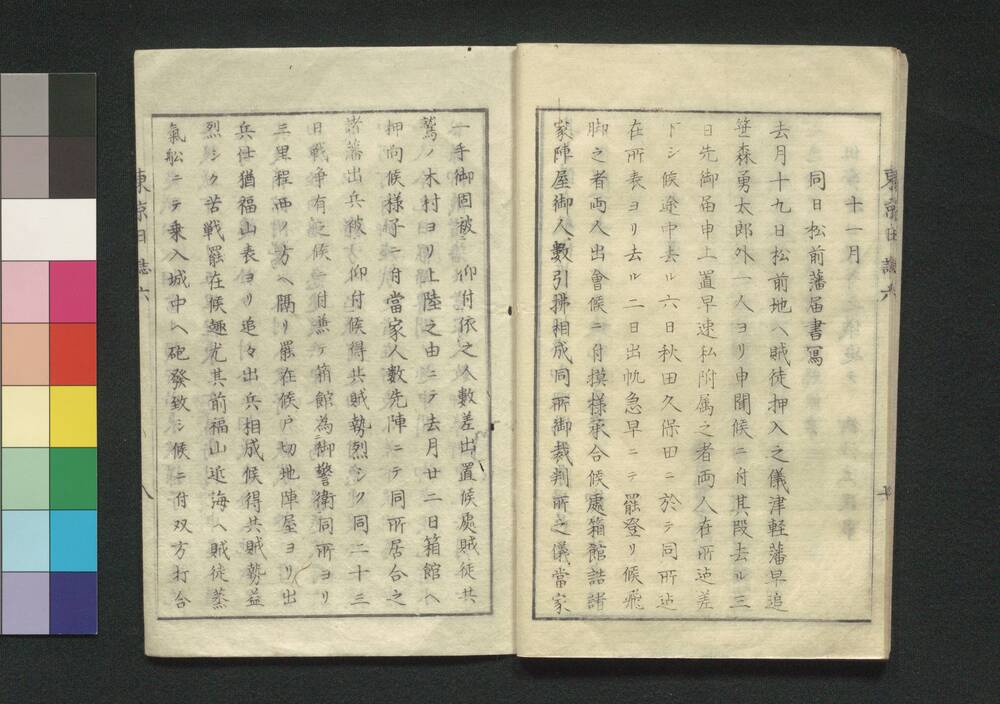 東京日誌六
十一月
同日松前藩届書冩
去月十九日松前地ヘ賊徒押入之儀津軽藩早追
笹森勇太郎外一人ヨリ申聞候ニ付其段去ル三
日先御届申上置早速私附属之者両人在所迠差
下シ候途中去ル六日秋田久保田ニ於テ同所迠
在所表ヨリ去ル二日出帆急早ニテ罷登リ候飛
脚之者両人出會候ニ付摸様承合候處箱館詰諸
家陣屋御人數引拂相成同所御裁判所之儀當家
一手御固被 仰付依之人數差出置候處賊徒共
鷲ノ木村ヨリ上陸之由ニテ去月廿二日箱館ヘ
押向候様子ニ付當家人數先陣ニテ同所居合之
諸藩出兵被 仰付候得共賊勢烈シク同二十三
日戦争有之候ニ付兼テ箱館為御警衛同所ヨリ
三里程西ノ方ヘ隔リ罷在候戸切地陣屋ヨリ出
兵仕猶福山表ヨリ追々出兵相成候得共賊勢益
烈シク苦戦罷在候趣尤其前福山近海ヘ賊徒蒸
氣舩ニテ乗入城中ヘ砲發致シ候ニ付双方打合
東京日誌六
八